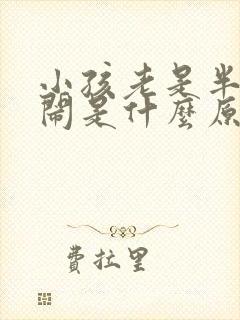 小孩老是半
鬧是什麼原
費拉里